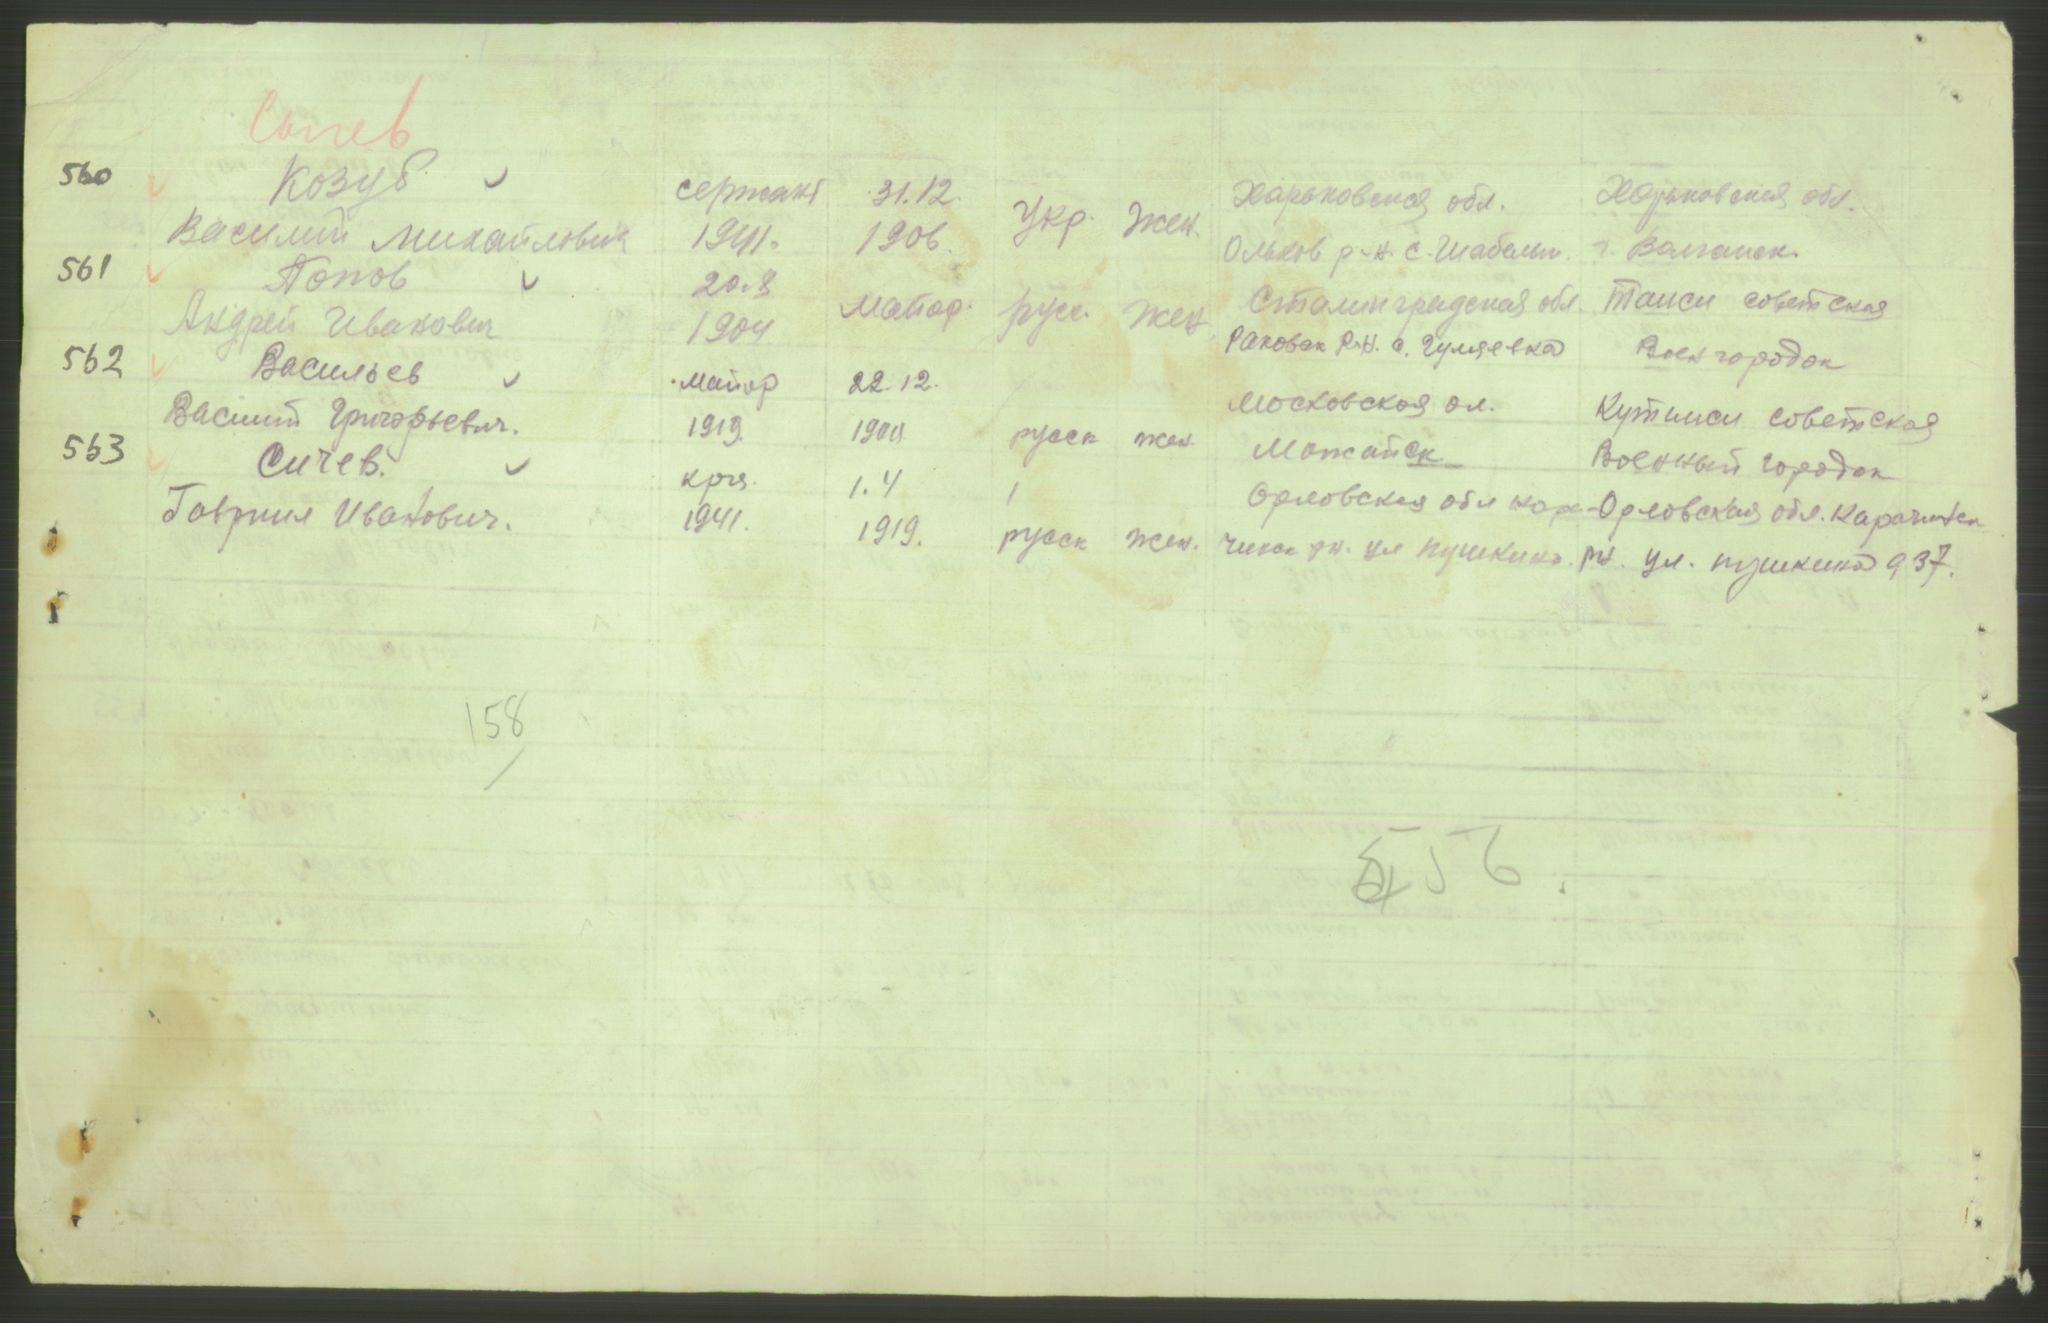 Сычев
560 Козуб сержант 31.12. Харьковская обл. Харьковская обл.
Василий Михайлович 1941. 1906. Укр. Жен. Ольхов р-н. с. г. Волчанск.
561 Попов 20.8 Майор. русс. Жен. Сталинградская обл. Таиси советская
Андрей Иванович 1904 Раковск Р-Н. с. Гуляевка Воен городок
562 Васильев майор 22.12. Московская ол. Кутииси советская
Василий Григорьевич. 1919. 1900 русск жен Можайск Военный городок
563 Сичев. кр-ц. 1.4 Орловская обл кара- Орловская обл. Карачивск
Гавриил Иванович. 1941. 1919. русск жен. чивск рн. ул пушкина. рн. ул. пушкина 937.
158
556.